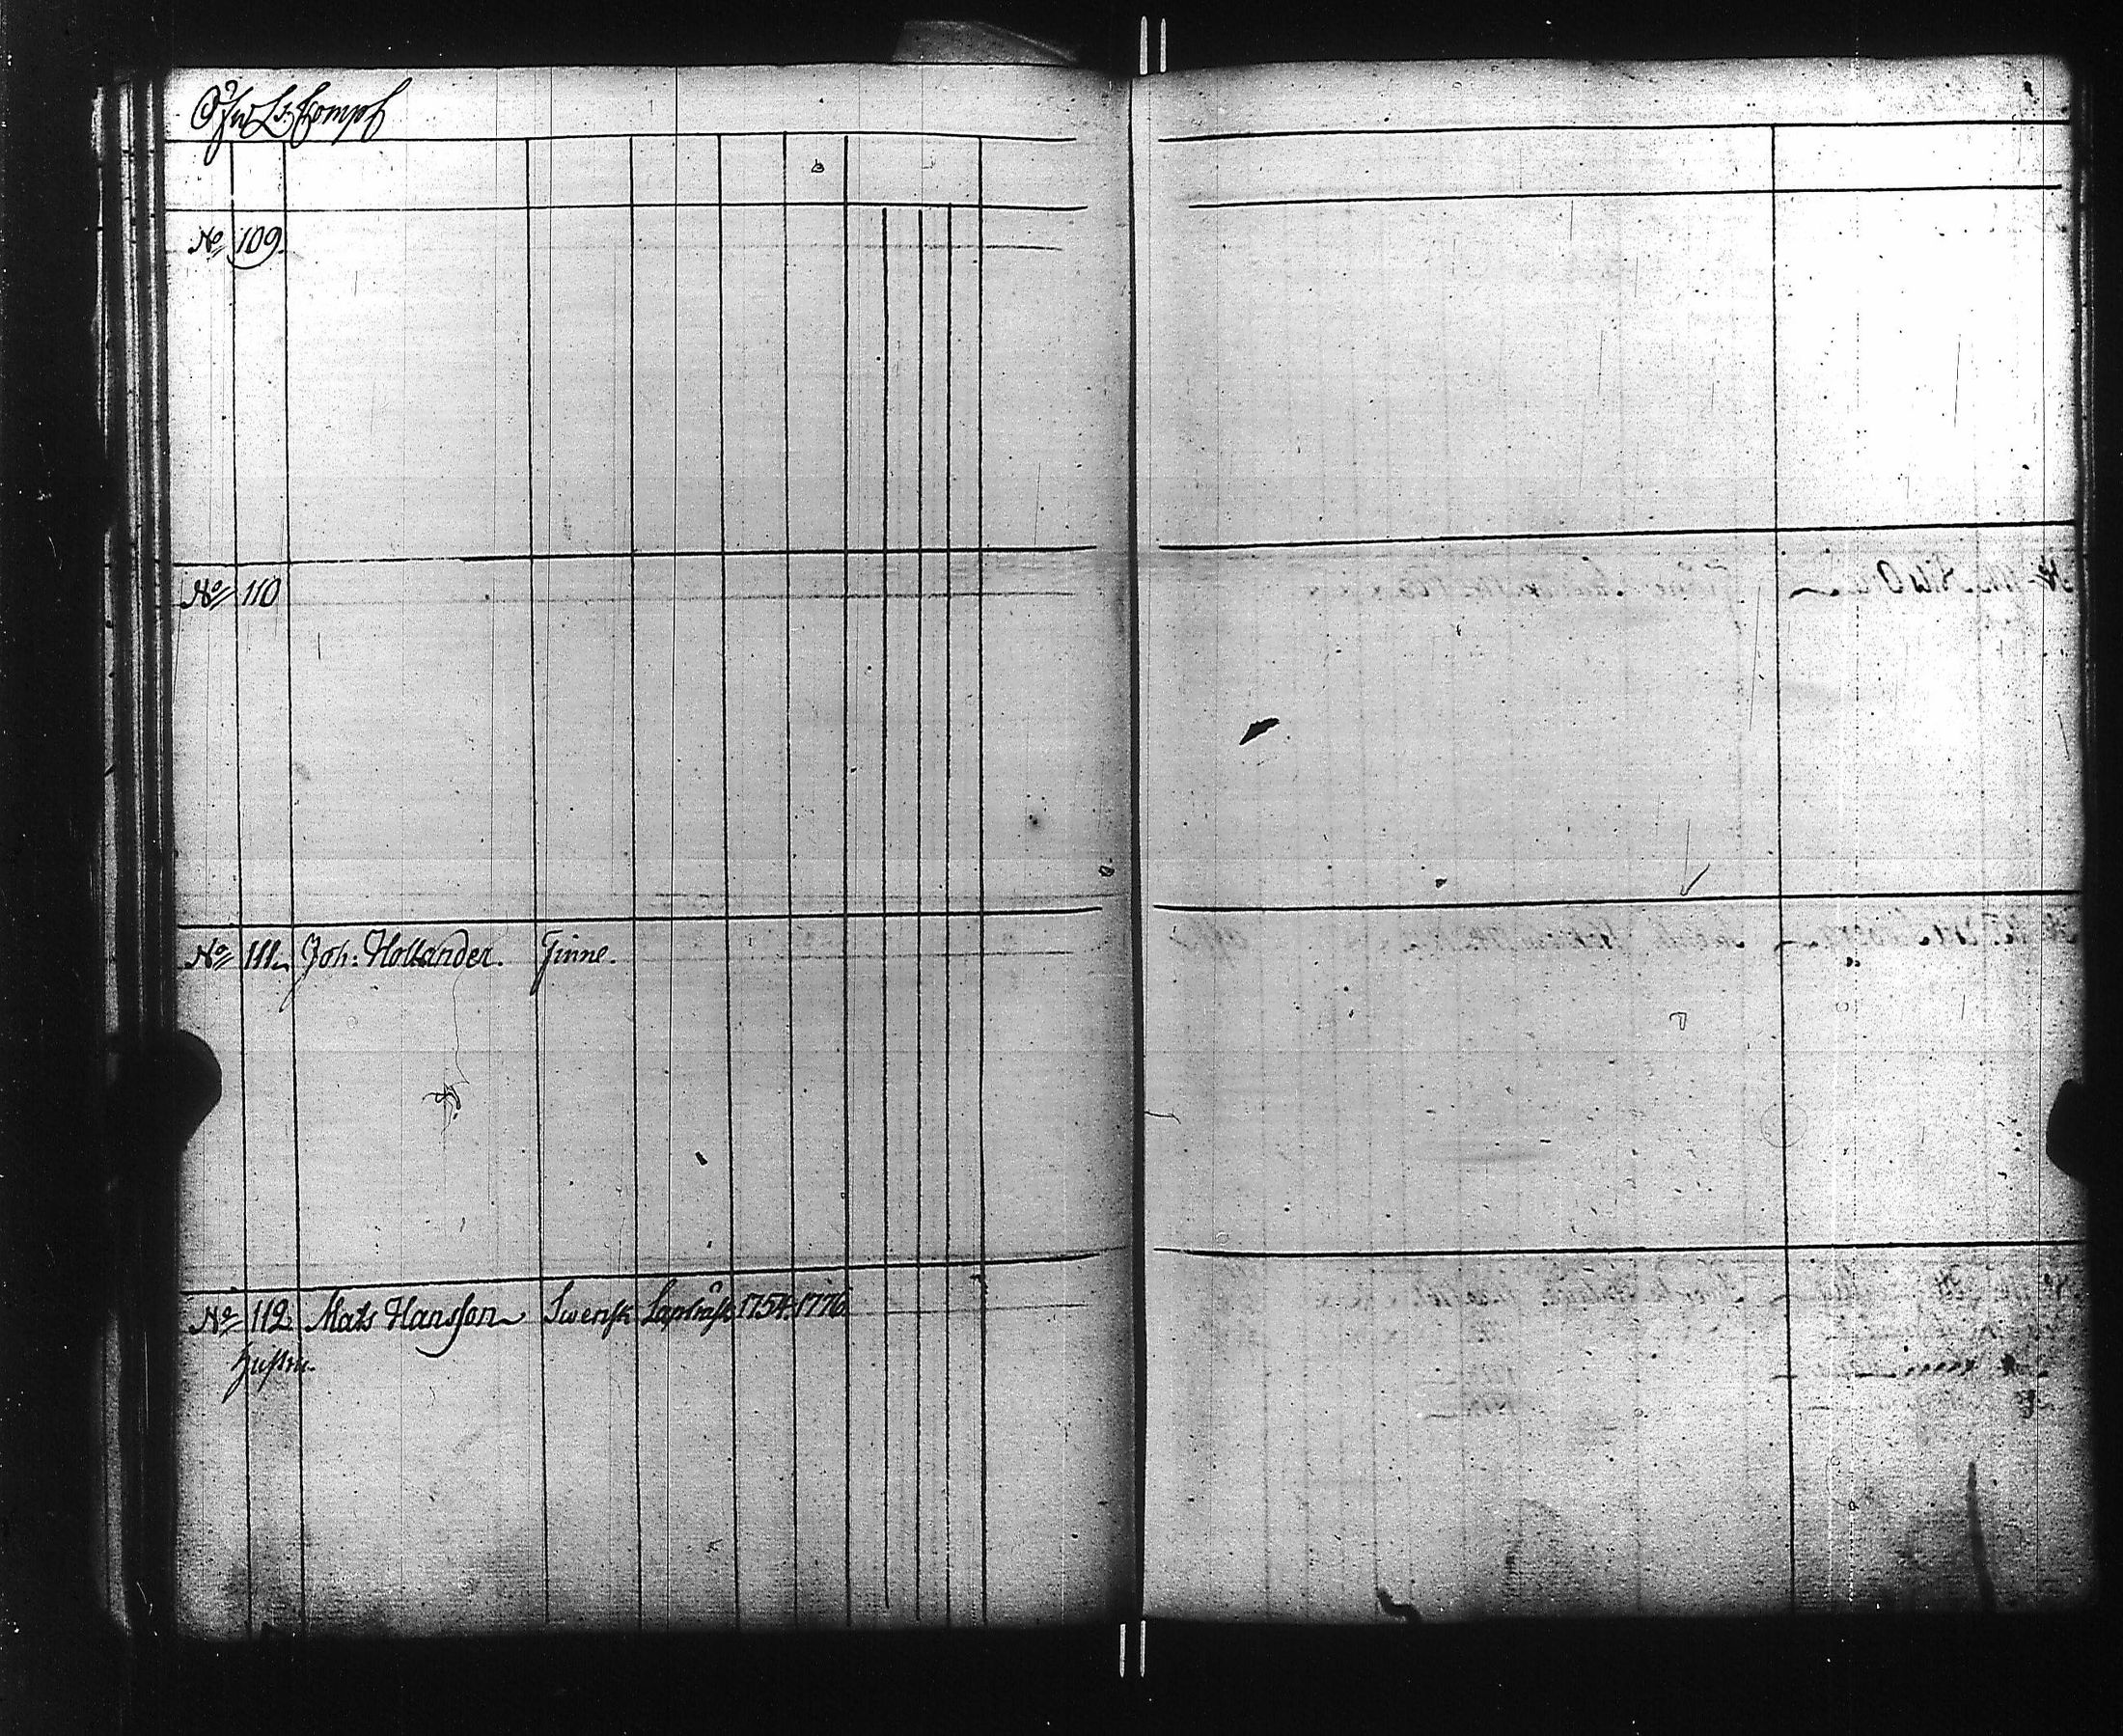 Öfw. Lt. Comp:
No 109.
No 110
No 111. Joh: Hollander. Finne.
No 112 Mats Hansson Swensk Lapträsk 1754. 1776
hustru.